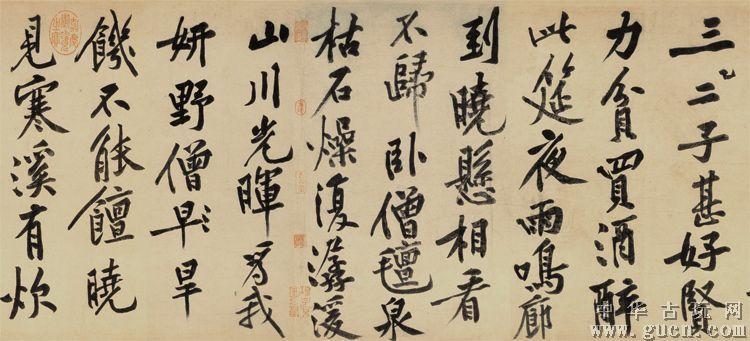 三二子甚好賢
力貧買酒醉
此筵夜雨鳴廊
到曉懸相看
不歸臥僧氈泉
枯石燥復潺湲
山川光暉為我
妍野僧早旱
饑不能饘曉
見寒溪有炊
中华古玩网
www.gucn.com